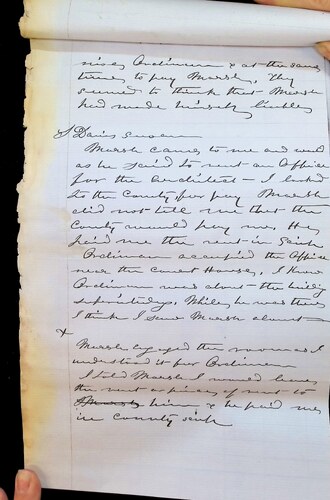 nises Ordiman & at the same
time to pay Marsh, They
seemed to think that Marsh
had made himself liable
S Davis sworn
Marsh came to me and said
as he said to rent an Office
for the Architect - I looked
to the County for pay Marsh
did not tell me that the
County would pay me. He
paid me the rent in Scrip
Ordiman occupied the Office
near the Court House, I knew
Ordiman was about the building
superintending. While he was there
I think I saw Marsh about
x
Marsh engaged the room as I
understood it for Ordiman
I told Marsh I would leave
the rent to
him & he paid me
in County scrip